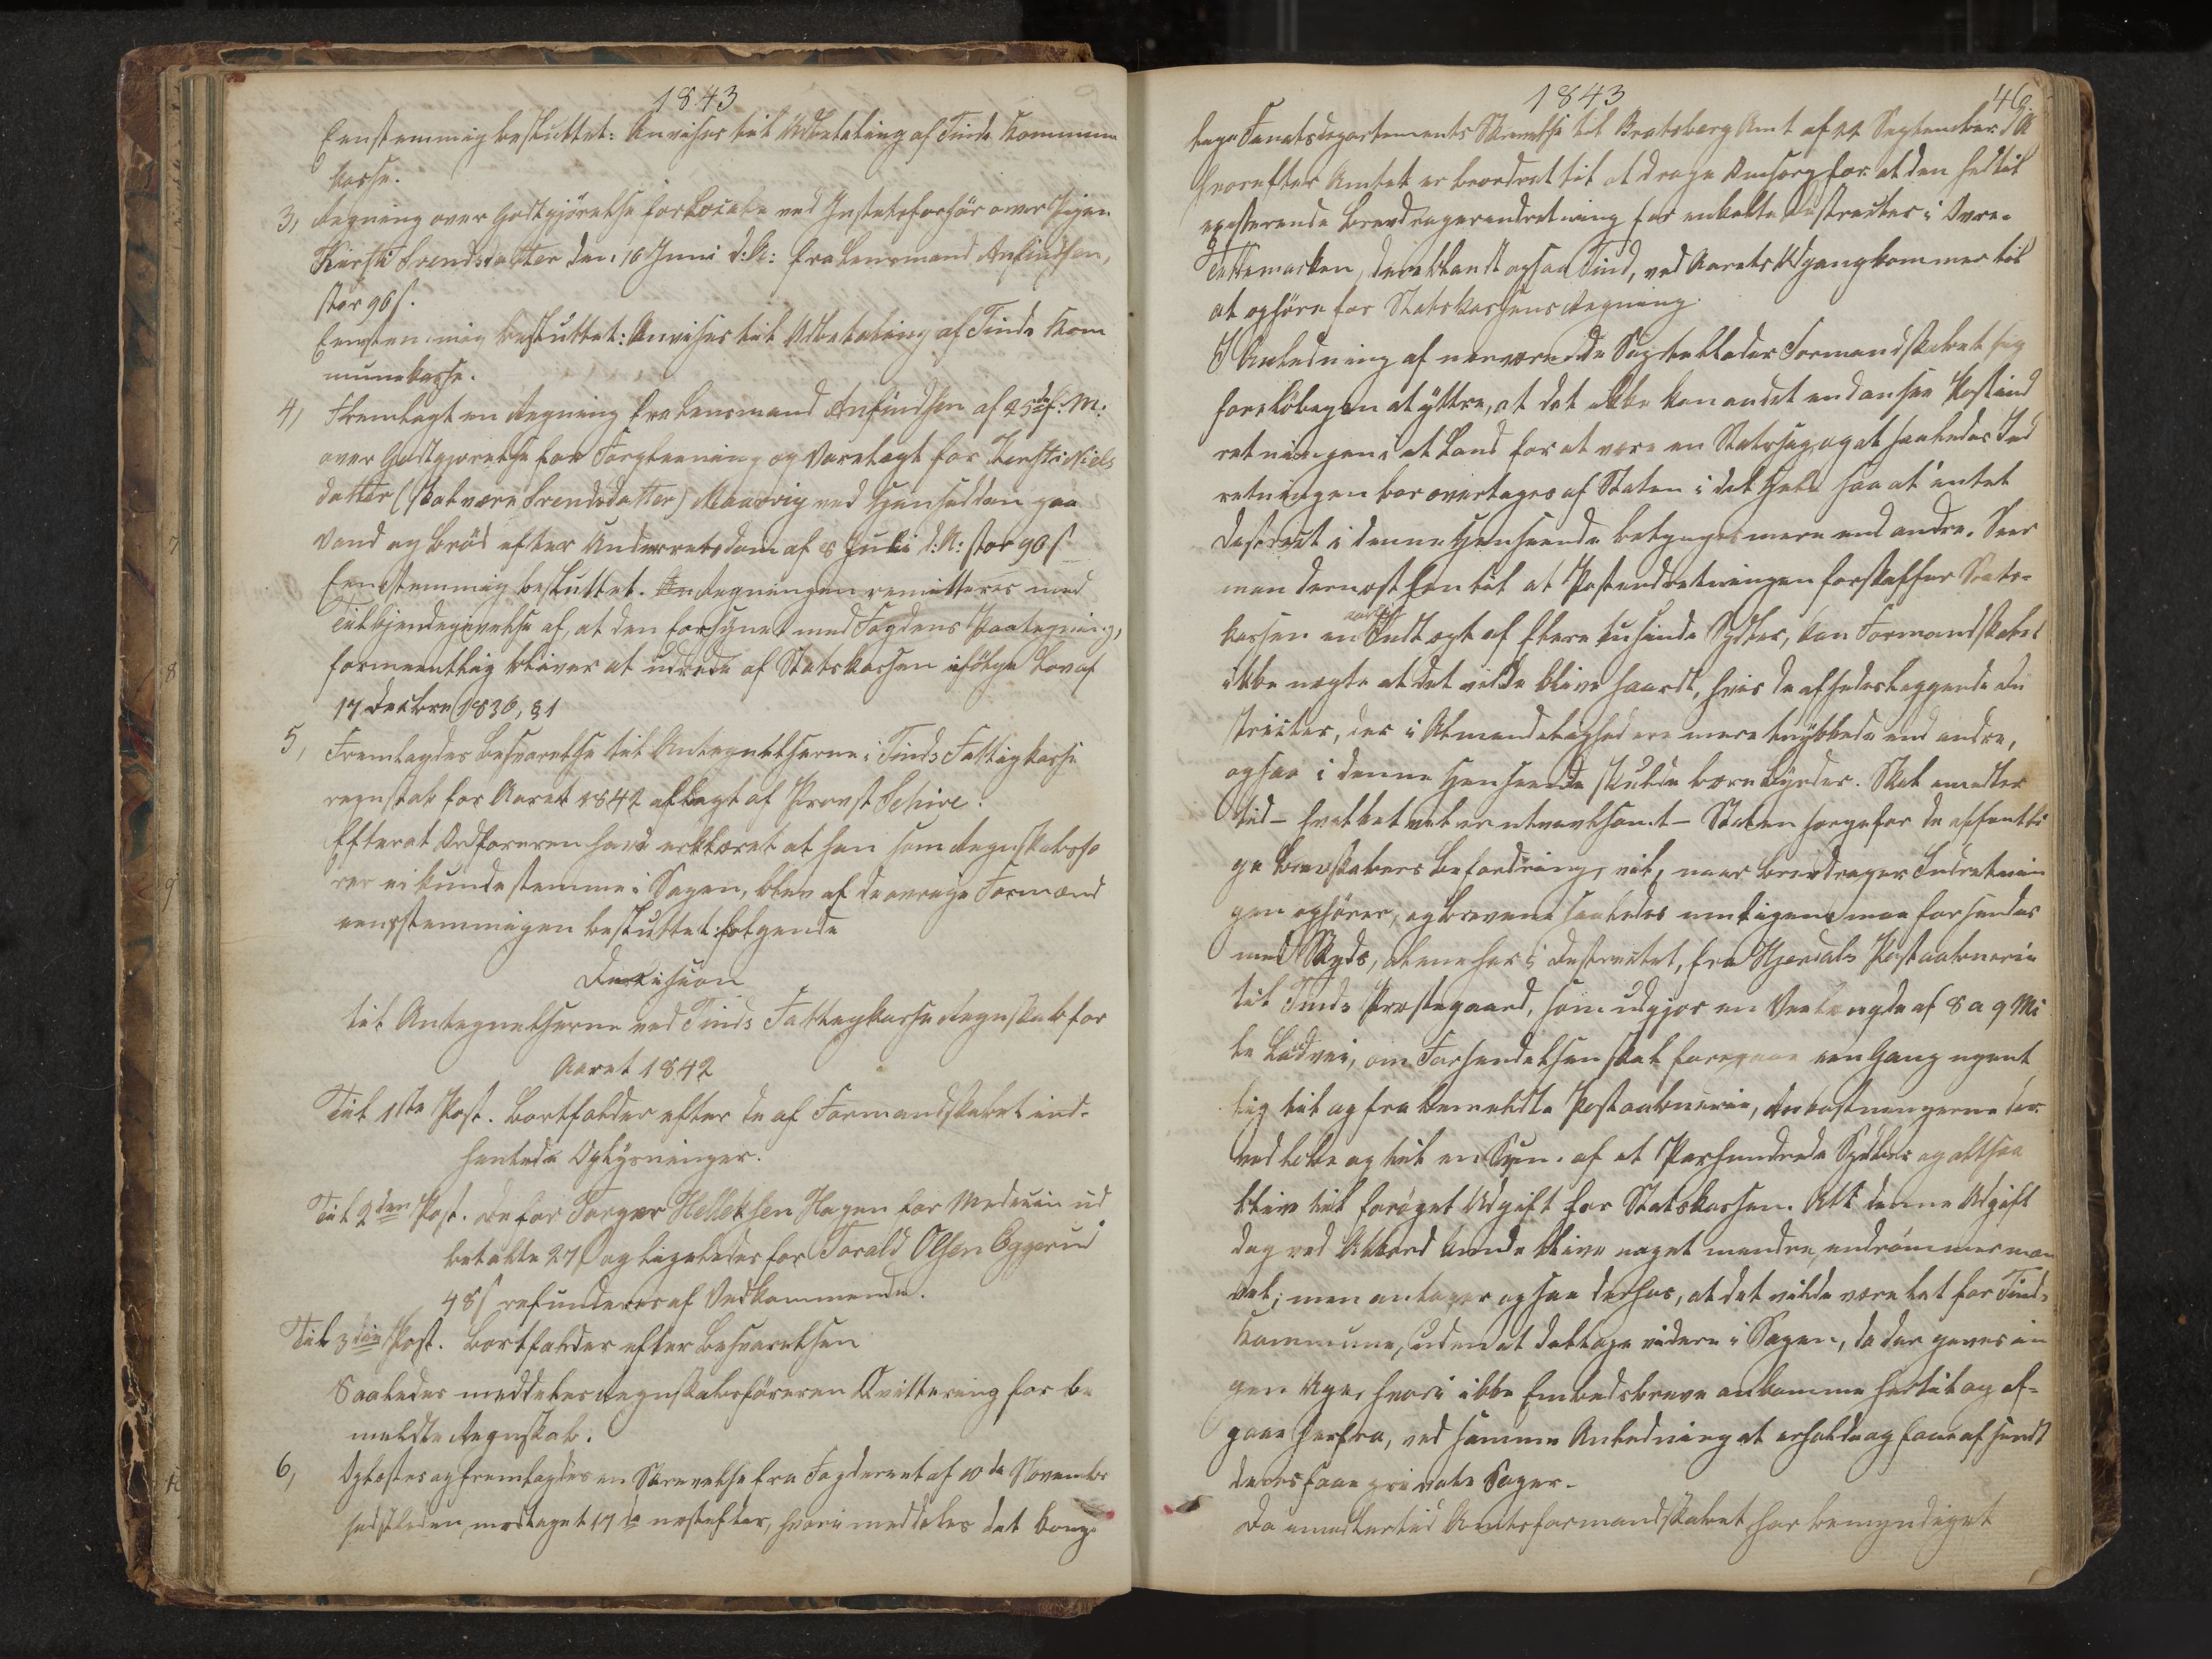 1843
Eenstemmig besluttet: Anvises til Udbetaling af Tinds Kommune
kasse.
3, Regning over Godtgjörelse for Locale ved Justitsforhör over Pigen
Kirsti Svendsdatter den 10 Juni d:A: fra Lensmand Anfindsen,
stor 90 s.
Eenstemmig besluttet: Anvises til Udbetaling af Tinds Kom
munekasse.
4, Fremlagt en Regning fra Lensmand Anfindsen af 25de f: M:
over Godtgjörelse for Forpleining og Varetægt for Kirsti Niels
datter (skal være Svendsdatter) Maarvig ved Hensidden paa
Vand og Bröd efter Underretsdom af 8 Juli d:A: stor 90 s
Eenstemmig besluttet. Regningen remitteres med
Tilkjendegivelse af, at den forsynet med Fogdens Paategning,
formeentlig bliver at udrede af Statskassen ifölge Lov af
17 Decbr 1836, § 1
5, Fremlagdes Besvarelse til Antegnelserne i Tinds Fattigkasse
regnskab for Aaret 1842 aflagt af Provst Schive.
Efterat Ordföreren havde erklæret at han som Regnskabsfö
rer ei kunde stemme i Sagen, blev af de övrige Formænd
eenstemmigen besluttet fölgende
Decision
til Antegnelserne ved Tinds Fattigkasse Regnskab for
Aaret 1842
Til 1ste Post. Bortfalder efter de af Formandskabet ind-
hentede Oplysninger.
Til 2den Post. De for Torger Helleksen Hagen for Medicin ud
betalte 27 s og ligeledes for Torald Olsen Eggerud
48 s refunderes af Vedkommende.
Til 3die Post. Bortfalder efter Besvarelsen
Saaledes meddeles Regnskabsföreren Qvittering for be
meldte Regnskab.
6, Oplæstes og fremlagdes en Skrivelse fra Fogderiet af 10de November
sidstleden, modtaget 17de næstefter, hvori meddeles det Konge
1843
46
lige Finantsdepartements Skrivelse til Bratsberg Amt af 22 September d A
hvorefter Amtet er beordret til at drage Omsorg for at den hidtil
existerende Brevdragerindretning for enkelte Districter i Övre-
Tellemarken, deriblandt ogsaa Tind, ved Aarets Udgang kommer til
at ophöre for Statskassens Regning.
I Anledning af nærværende Sag tillader Formandskabet sig
forelöbigen at yttre, at det ikke kan andet end ansee Postind
retningen i et Land for at være en Statssag, og at saaledes Ind
retningen bör overtages af Staten i det Hele saa at intet
District i denne Henseende betynges mere end andre. Seer
man dernæst hen til at Postindretningen forskaffer Stats-
kassen en aarlig Indtægt af flere tusinde Spdler, kan Formandskabet
ikke nægte at det vilde blive haardt, hvis de afsidesliggende Di
stricter, der i Almindelighed ere mere trykkede end andre,
ogsaa i denne Henseende skulde bære Byrder. Skal imidler
tid - hvilket vel er utvivlsomt - Staten sörge for de offentli
ge Brevskabers Befordring, vil, naar Brevdrager Indretnin
gen ophörer, og Brevene saaledes umiligens maa forsendes
med Skyds, alene her i Districtet, fra Hjerdals Postaabneri
til Tinds Præstegaard, som udgjör en Veilængde af 8 a 9 Mi
le Landvei, om Forsendelsen skal foregaae een Gang ugent
lig til og fra bemeldte Postaabneri, Omkostningerne der
ved löbe op til en Sum af et Parhundrede Spdler og altsaa
blive til foröget Udgift for Statskassen. At denne Udgift
dog ved Akkord kunde blive noget mindre, indrömmer man
vel; men antager ogsaa derhos, at det vilde være let for Tinds
Kommune, uden at deltage videre i Sagen, da der gives in
gen Uge, hvori ikke Embedsbreve ankomme hertil og af-
gaae herfra, ved samme Anledning at erholde og faae afsendt
deres faae private Sager.
Da imidlertid Amtsformandskabet har bemyndiget